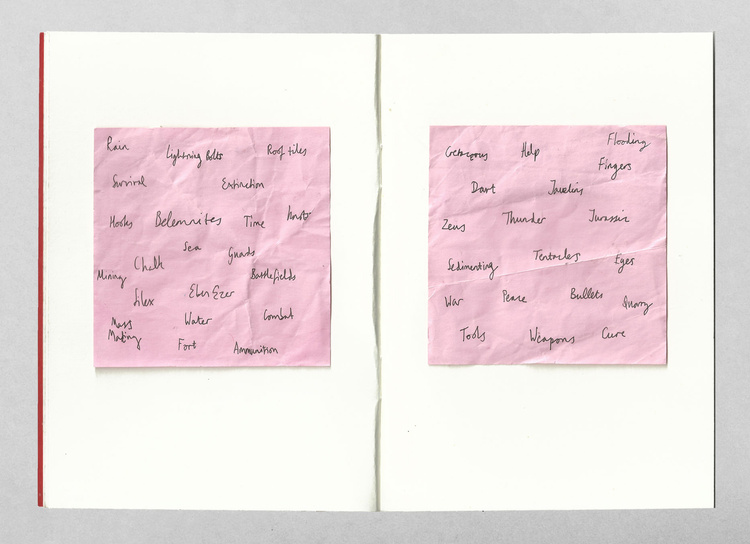 Rain
Lightning Bolts
Roof tiles
Survival
Extinction
Hooks
Belemnites
Time
Sea
Guards
Chalk
Mining
Battlefields
Silex
Eben Ezer
Mass
Mating
Water
Combat
Fort
Ammunition
Cretaceous
Help
Flooding
Fingers
Dart
Javelins
Zeus
Thunder
Jurassic
Sedimenting
Tentacles
Eyes
War
Peace
Bullets
Quarry
Tools
Weapons
Cure